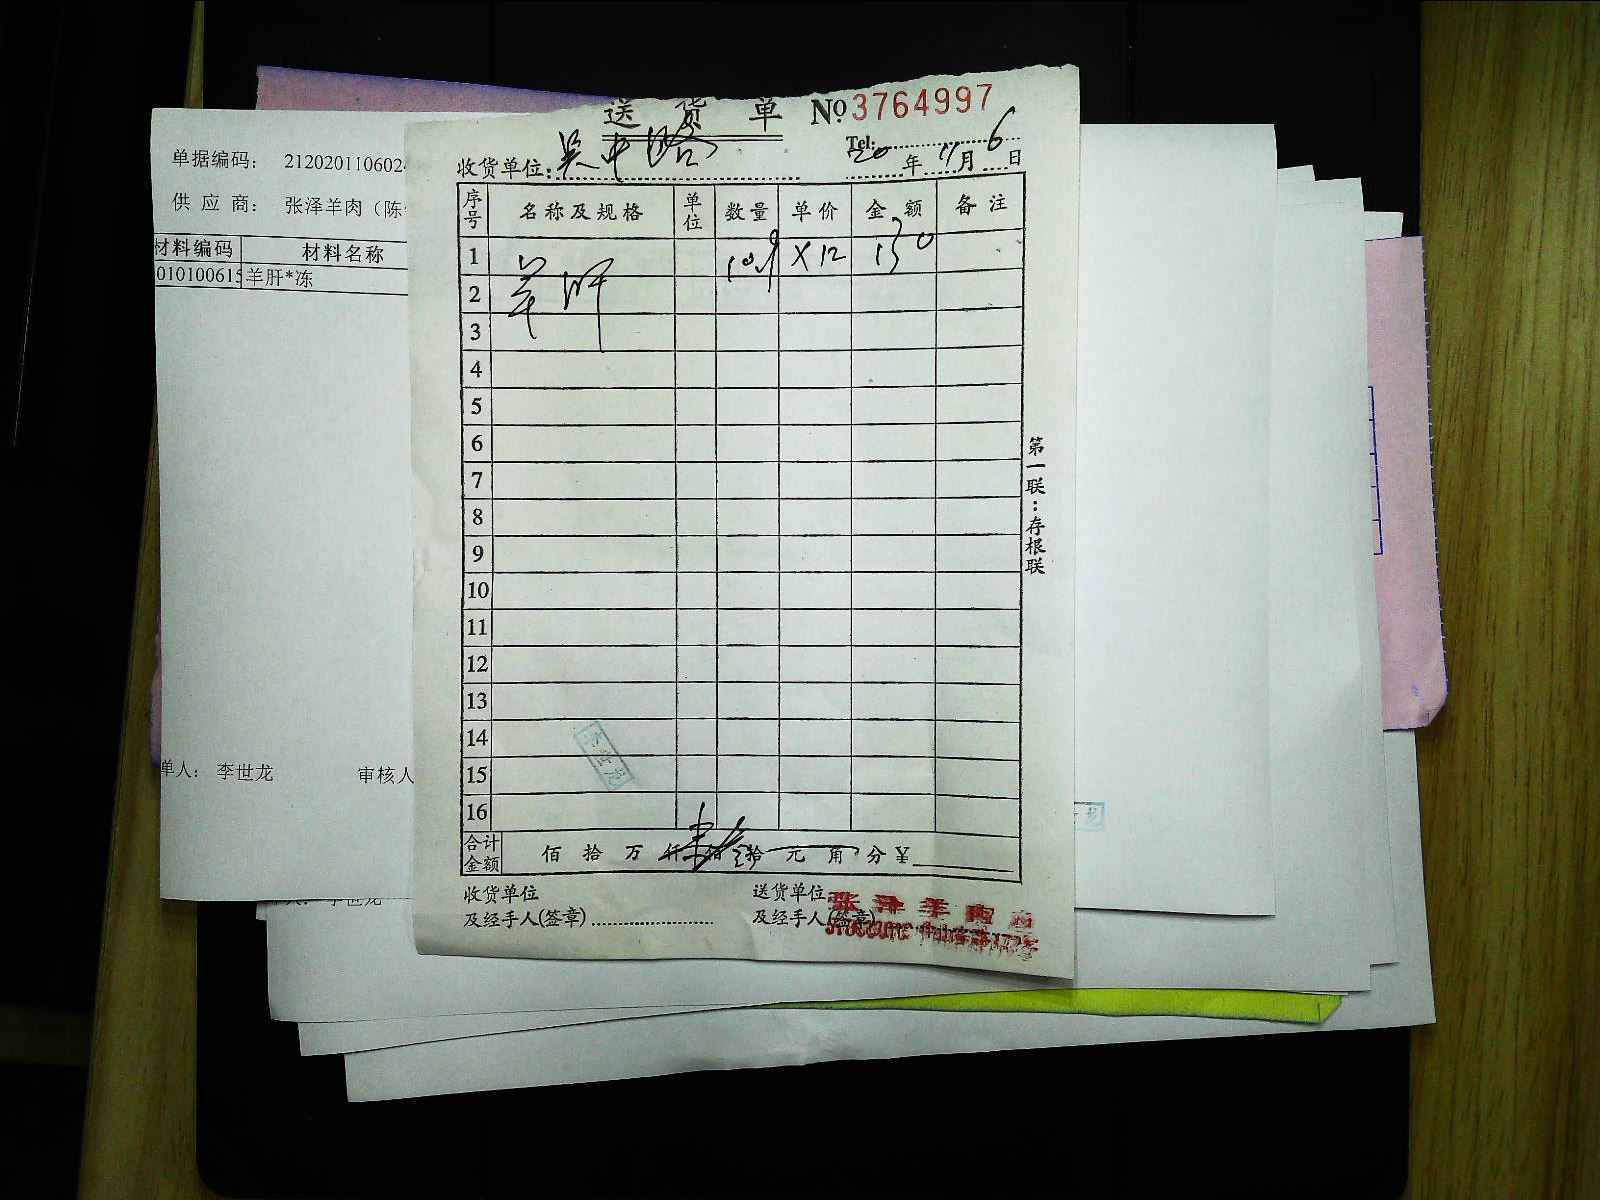 送货单 №3764997
Tel:
收货单位: 吴中路 20年11月6日
序号 名称及规格 单位 数量 单价 金额 备注
1 ×12 130
2 羊肝
3
4
5
6
7
8
9
10
11
12
13
14
15
16
李世龙
合计金额 佰 拾 万 仟 佰 拾 元 角 分 ¥
收货单位 送货单位
及经手人(签章) 及经手人(签章)
张泽羊肉
第一联:存根联
单据编码: 212020110602
供应商: 张泽羊肉(陈
材料编码 材料名称
010100615 羊肝*冻
单人: 李世龙 审核人
人: 李世龙
龙